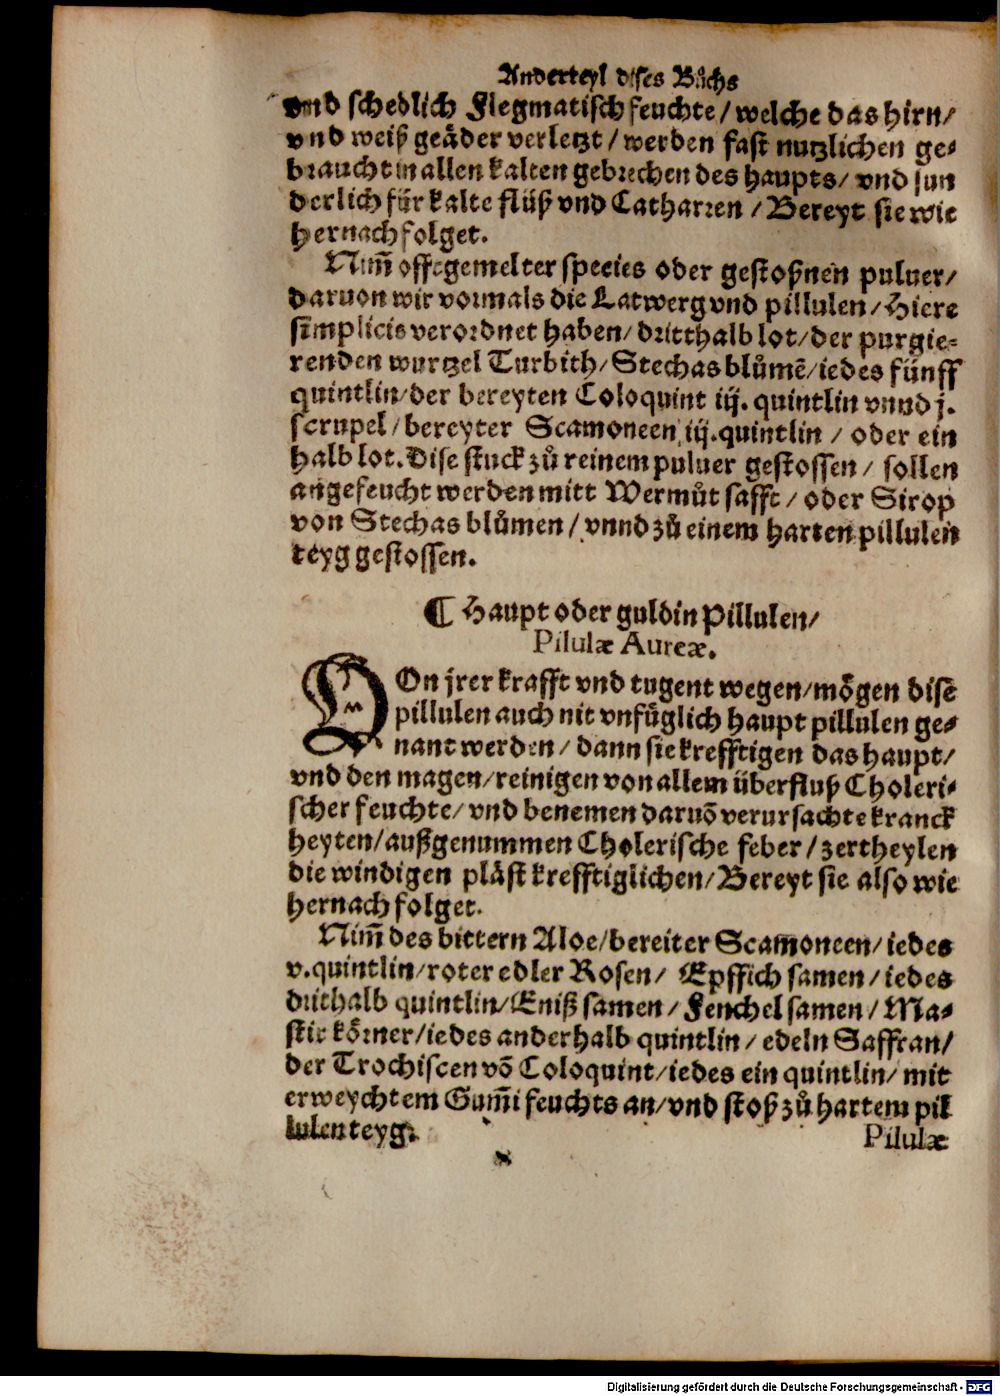 Anderteyl dises Bůchs
vnd schedlich Flegmatisch feuchte / welche das hirn /
vnd weiß geäder verletzt / werden fast nutzlichen ge⸗
braucht in allen kalten gebrechen des haupts / vnd sun
derlich für kalte flüß vnd Catharren / Bereyt sie wie
hernach folget.
Nim̃ offtgemelter species oder gestoßnen puluer /
daruon wir vormals die Latwerg vnd pillulen / Hiere
simplicis verordnet haben / dritthalb lot / der purgie⸗
renden wurtzel Turbith / Stechas blůmẽ / iedes fünff
quintlin / der bereyten Coloquint iij. quintlin vnnd j.
scrupel / bereyter Scamoneen iij. quintlin / oder ein
halb lot. Dise stuck zů reinem puluer gestossen / sollen
angefeucht werden mitt Wermůt safft / oder Sirop
von Stechas blůmen / vnnd zů einem harten pillulen
teyg gestossen.
¶ Haupt oder guldin Pillulen /
Pilulæ Aureæ.
VOn jrer krafft vnd tugent wegen / mögen disẽ
pillulen auch nit vnfüglich haupt pillulen ge⸗
nant werden / dann sie krefftigen das haupt /
vnd den magen / reinigen von allem überfluß Choleri⸗
scher feuchte / vnd benemen daruõ verursachte kranck
heyten / außgenummen Cholerische feber / zertheylen
die windigen pläst krefftiglichen / Bereyt sie also wie
hernach folget.
Nim̃ des bittern Aloe / bereiter Scamoneen / iedes
v. quintlin / roter edler Rosen / Epffich samen / iedes
drithalb quintlin / Eniß samen / Fenchel samen / Ma⸗
stix körner / iedes anderhalb quintlin / edeln Saffran /
der Trochiscen võ Coloquint / iedes ein quintlin / mit
erweychtem Gum̃i feuchts an / vnd stoß zů hartem pil
lulen teyg.
Pilulæ
Digitalisierung gefördert durch die Deutsche Forschungsgemeinschaft - DFG